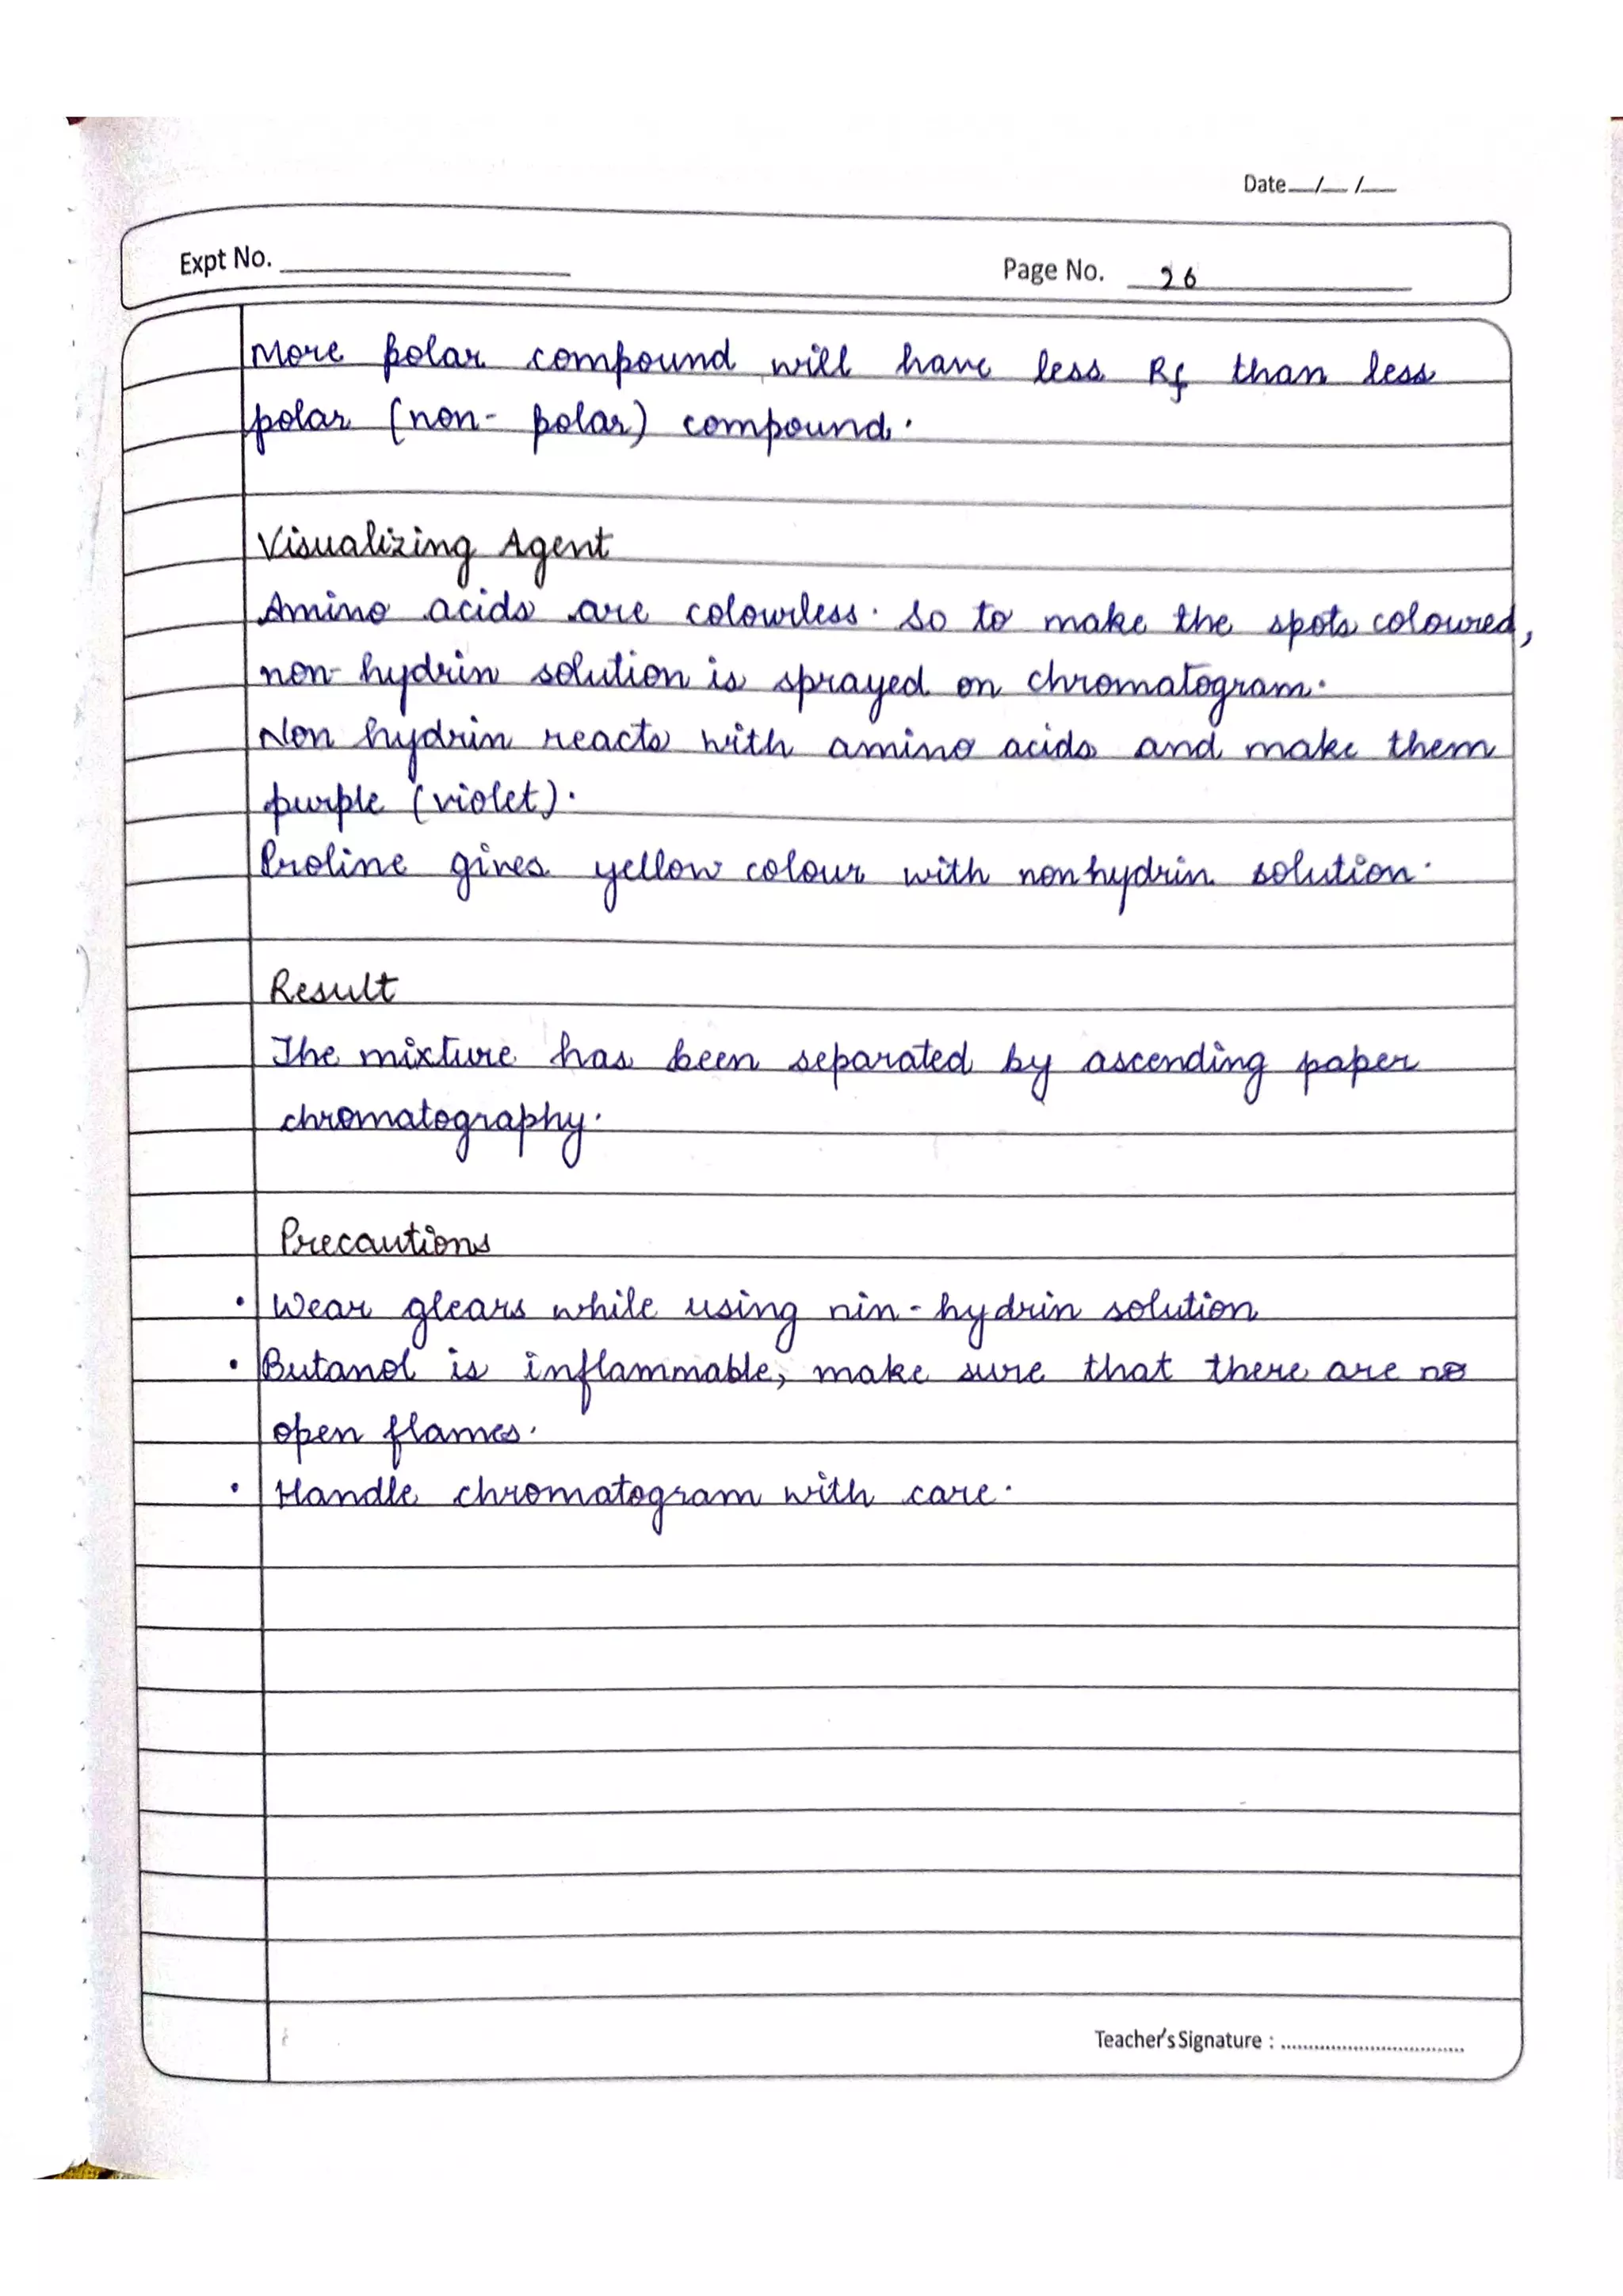 Date __/__ /__
Expt No. ____________ Page No. 26
More polar compound will have less Rf than less
polar (non- polar) compound.
Visualizing Agent
Amino acids are colourless. So to make the spots coloured,
non-hydrin solution is sprayed on chromatogram.
Non hydrin reacts with amino acids and make them
purple (violet).
Proline gives yellow colour with nonhydrin solution.
Result
The mixture has been separated by ascending paper
chromatography.
Precautions
• Wear glears while using nin-hydrin solution
• Butanol is inflammable, make sure that there are no
open flames.
• Handle chromatogram with care.
Teacher's Signature : ................................